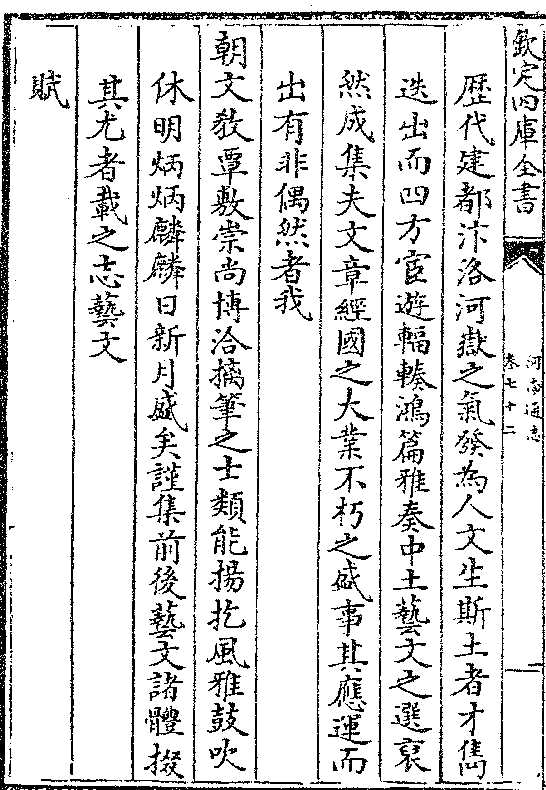 欽定四庫全書
河南通志
卷七十二
歴代建都汴洛河嶽之氣發為人文生斯土者才雋
迭出而四方宦遊輻輳鴻篇雅奏中土藝文之選裒
然成集夫文章經國之大業不朽之盛事其應運而
出有非偶然者我
朝文敎覃敷崇尚博洽摛筆之士類能揚扢風雅鼓吹
休明炳炳麟麟日新月盛矣謹集前後藝文諸體掇
其尤者載之志藝文
賦
一